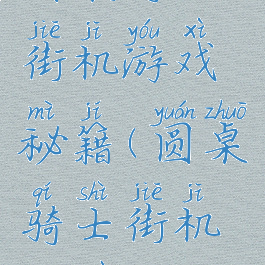 jiē jī yóu xì
街机游戏
mì jí yuán zhuō
秘籍(圆桌
qí shì jiē jī
骑士街机